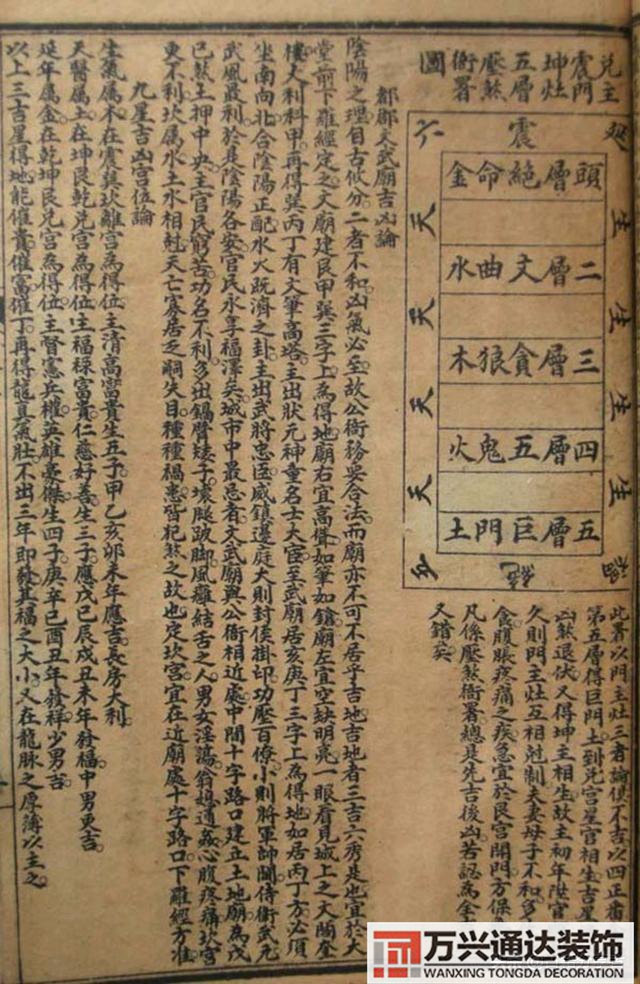 兌主
震門
坤灶
五層
壓煞
衙署
圖
震
頭層絕命金
二層文曲水
三層貪狼木
四層五鬼火
五層巨門土
生
生
生
天
天
天
天
此署以門主灶三者論俱不吉以四正番
第五層得巨門土到兌宮星宮相生吉星
凶煞退伏又得坤主相生故主初年陞官
久則門主灶互相尅制夫妻母子不和多
食腹脹疼痛之疾急宜於艮宮開門方保
凡係壓煞衙署總是先吉後凶若認為全
又錯矣
都郡文武廟吉凶論
陰陽之理自古攸分二者不和凶氣必至故公衙務要合法而廟亦不可不居乎吉地吉地者三吉六秀是也宜於大
堂前下羅經定之文廟建艮甲巽三字上為得地廟右宜高聳如筆如鎗廟左宜空缺明亮一眼看見城上之文閣奎
樓大利科甲再得巽丙丁有文筆高塔主出狀元神童名士大宦至武廟居亥庚丁三字上為得地如居丙丁方必須
坐南向北合陰陽正配水火既濟之卦主出武將忠臣威鎮邊庭大則封侯掛印功壓百僚小則將軍帥閫侍衛武元
武風最利於是陰陽各安官民永享福澤矣城市中最忌者文武廟與公衙相近處中間十字路口建立土地廟為戊
己煞土押中央主官民窮苦功名不利多出鍋臂矮子壞腿跛脚風癱結舌之人男女淫蕩翁媳通姦心腹疼痛坎宮
更不利坎屬水土水相尅夭亡寡居乏嗣失目種種禍患皆犯煞之故也定坎宮宜在近廟處十字路口下羅經方准
九星吉凶宮位論
生氣屬木在震巽坎離宮為得位主清高富貴生五子甲乙亥卯未年應吉長房大利
天醫屬土在坤艮乾兌宮為得位主福祿富貴仁慈好善生三子應戊己辰戌丑未年發福中男更吉
延年屬金在乾坤艮兌宮為得位主督憲兵權英雄豪傑生四子庚辛巳酉丑年發祥少男吉
以上三吉星得地能催貴催富催丁再得龍真氣壯不出三年即發其福之大小又在龍脉之厚薄以主之
万兴通达装饰
WANXING TONGDA DECORATION